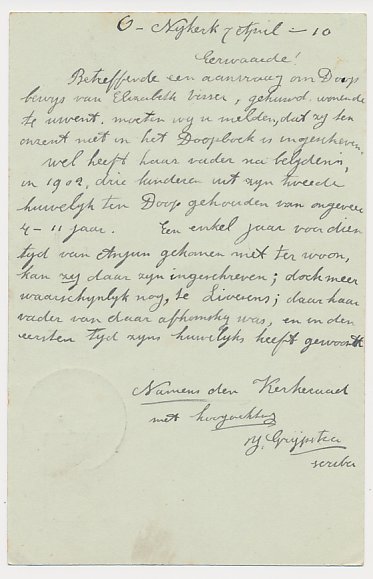 O - Nijkerk 7 April - 10
Eerwaarde!
Betreffende een aanvraag om Doop
bewijs van Elizabeth Visser, gehuwd, wonende
te uwent, moeten wij u melden, dat zij ten
onzent niet in het Doopboek is ingeschreven.
Wel heeft haar vader na belijdenis,
in 1902, drie kinderen uit zijn tweede
huwelijk ten Doop gehouden van ongeveer
4 - 11 jaar. Een enkel jaar voor dien
tijd van Anjum gekomen met ter woon,
kan zij daar zijn ingeschreven; doch meer
waarschijnlyk nog, te Lioessens; daar haar
vader van daar afkomstig was, en in den
eersten tyd zyns huwelyks heeft gewoond
Namens den Kerkeraad
met hoogachting
Grijpstra
scriba